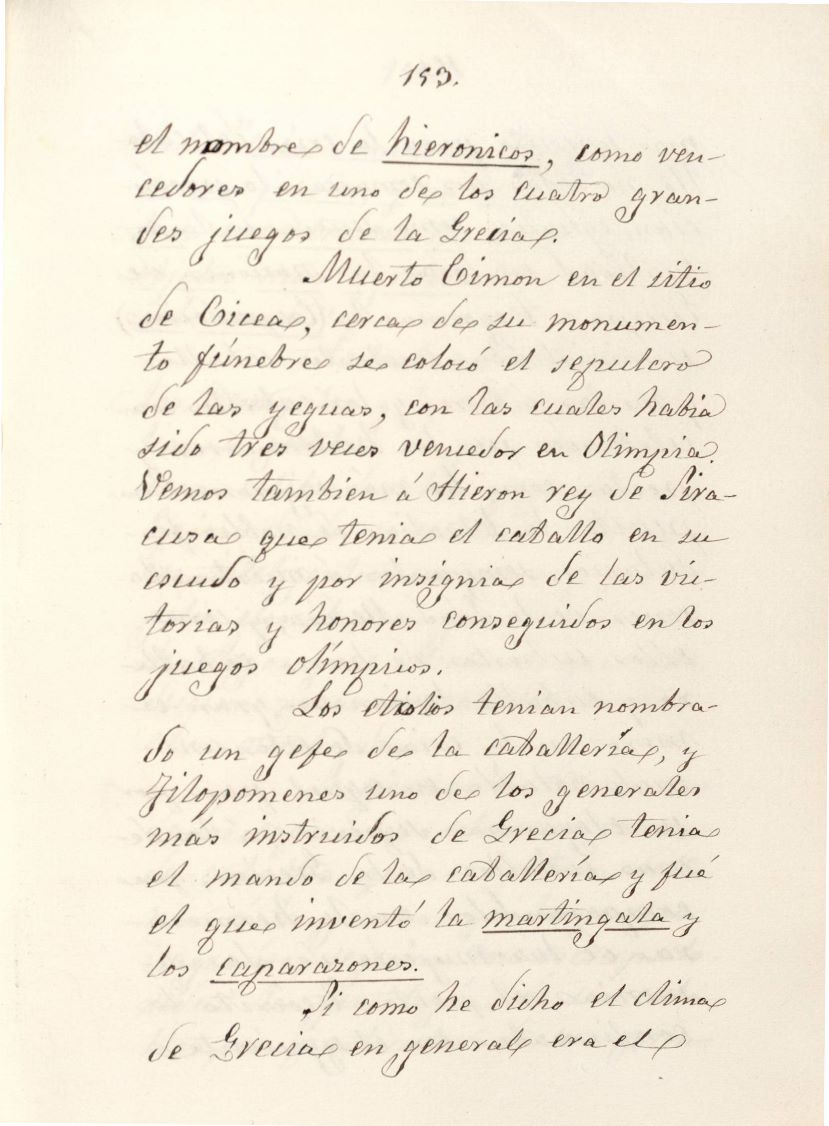 153.
el nombre de hieronicos, como ven-
cedores en uno de los cuatro gran-
des juegos de la Grecia.
Muerto Cimon en el sitio
de Cicea, cerca de su monumen-
to fúnebre se colocó el sepulcro
de las yeguas, con las cuales habia
sido tres veces vencedor en Olimpia.
Vemos tambien á Hieron rey de Sira-
cusa que tenia el caballo en su
escudo y por insignia de las vic-
torias y honores conseguidos en los
juegos olímpicos.
Los etiolios tenian nombra-
do un gefe de la caballería, y
Filopomenes uno de los generales
más instruidos de Grecia tenia
el mando de la caballería y fué
el que inventó la martingala y
los caparazones.
Si como he dicho el clima
de Grecia en general era el